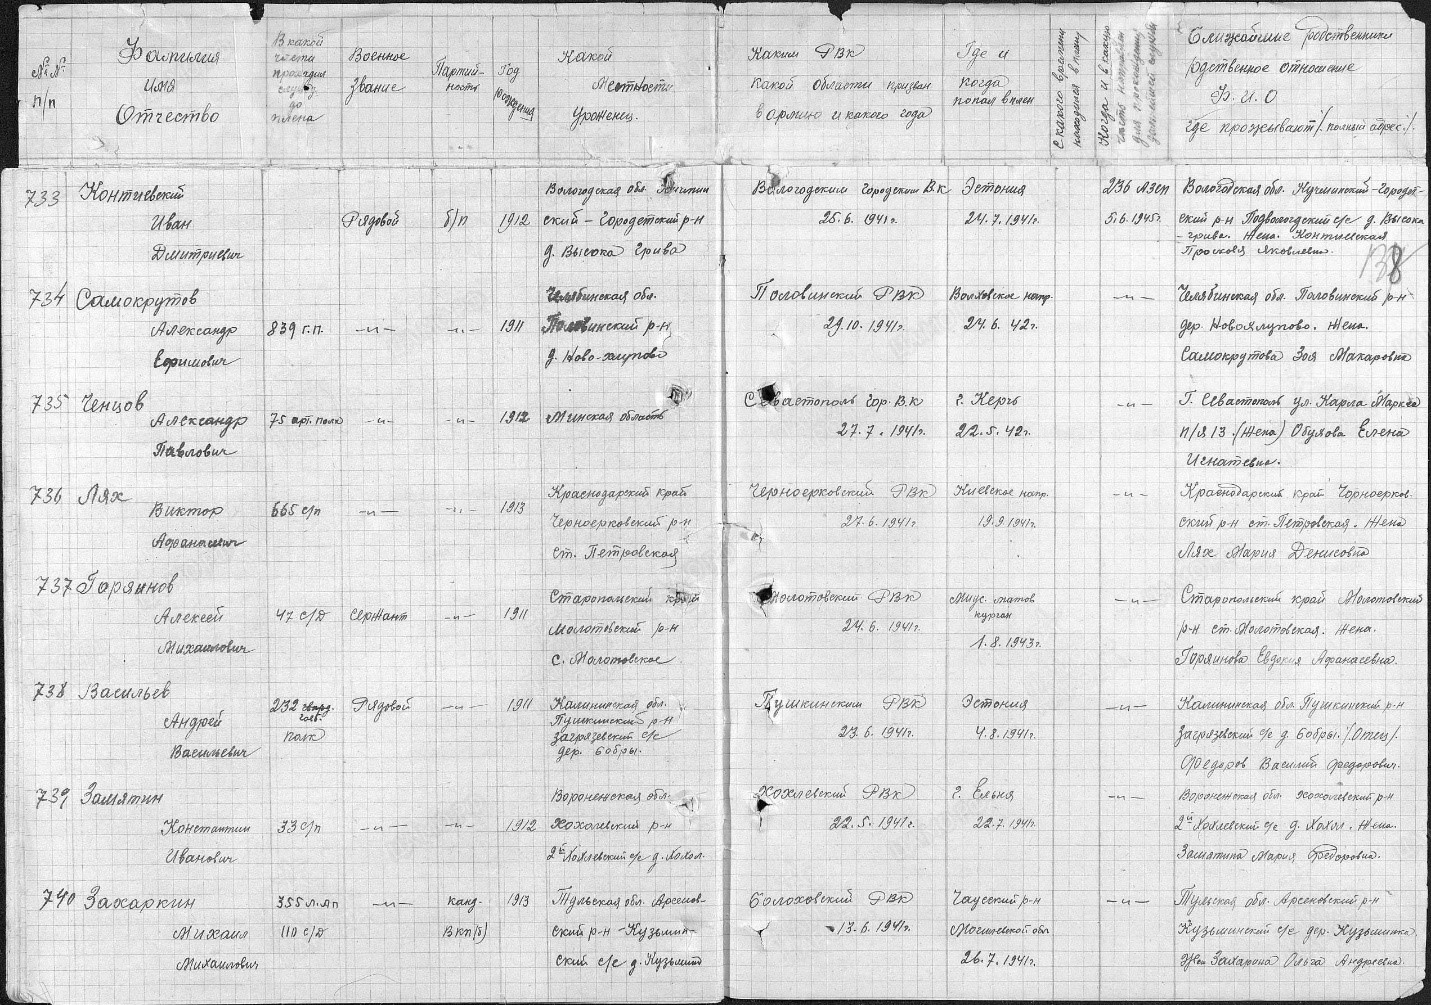 № № п/п
Фамилия
имя
Отчество
В какой
части
проходил
службу
до
плена
Военное
звание
Партий-
ность
Год
рождения
Какой
Местности
Уроженец.
Каким РВК
какой области призван
в армию и какого года
Где и
когда
попал в плен
С какого времени
находился в плену
Когда и в какую
часть направлен
для
Ближайшие родственники
родственное отношение
Ф. И. О
где проживают /. полный адрес./.
138
733 Контиевский
Иван
Дмитриевич
Рядовой
б/п
1912
Вологодская обл.
ский - Городетский р-н
д. Высока Грива
Вологодским городским ВК
25.6. 1941г.
Эстония
24.7.1941г.
236 АЗСП
5.6.1945г.
Вологодская обл. Кичминский-Городет-
ский р-н Подвологодский с/с д. Высока
-грива. Жена. Контиевская
Просковя Яковлевна.
734 Самокрутов
Александр
Ефимович
839 г.п.
-"-
-"-
1911
Челябинская обл.
Половинский р-н
д. Ново-
Половинский РВК
29.10. 1941г.
Волховское напр.
24.6. 42г.
-"-
Челябинская обл. Половинский р-н
дер. Новоялупово. Жена.
Самокрутова Зоя Макаровна
735 Ченцов
Александр
Павлович
75 арт. полк
-"-
-"-
1912
Минская область
Севастополь Гор. ВК
27.7. 1941г.
г. Керчь
22.5. 42г.
-"-
Г. Севастополь ул. Карла Маркса
п/я 13. (Жена) Обухова Елена
Игнатевна.
736 Лях
Виктор
Афанасевич
665 с/п
-"-
-"-
1913
Краснодарский край
Черноерковский р-н
ст. Петровская
Черноерковский РВК
27.6. 1941г
Киевское напр.
19.9 1941г.
-"-
Краснодарский край Чорноерков-
ский р-н ст. Петровская. Жена
Лях Мария Денисовна
737 Горяинов
Алексей
Михаилович
47 с/д
Сержант
-"-
1911
Старопольский край
Молотовский р-н
с. Молотовское
Молотовский РВК
24.6. 1941г.
Миус. матов
курган
1.8.1943г.
-"-
Старопольский край Молотовский
р-н ст. Молотовская. Жена.
Горяинова Евдокия Афанасевна.
738 Васильев
Андрей
Васильевич
232 гвард.
полк
Рядовой
-"-
1911
Калининская обл.
Пушкинский р-н
Загрязевский с/с
дер. бобры.
Пушкинским РВК
23.6. 1941г.
Эстония
4.8. 1941г.
-"-
Калининская обл. Пушкинский р-н
Загрязевский с/с д. бобры. /Отец/.
Федоров Василий Федорович.
739 Замятин
Константин
Иванович
33 с/п
-"-
-"-
1912
Воронежская обл.
Хохолевский р-н
2й Хохлевский с/с д. Хохол.
Хохлевский РВК
22.5. 1941г.
г. Ельня
22.7. 1941г.
-"-
Воронежская обл. Хохолевский р-н
2й Хохлевский с/с д. Хохол. Жена.
Замятина Мария Федоровна.
740 Захаркин
Михаил
Михаилович
355 л.ап
110 с/д
-"-
канд.
ВКП(б)
1913
Тульская обл. Арсенов-
ский р-н - Кузьмин-
ский с/с д. Кузьмин
Болоховский РВК
13.6. 1941г.
Чаусский р-н
Могилевской обл
26.7. 1941г.
-"-
Тульская обл. Арсеновский р-н
Кузьминский с/с дер. Кузьминка.
Жен Захарина Ольга Андреевна.